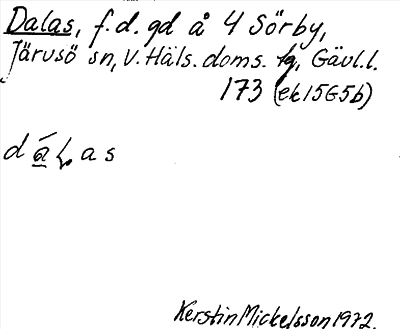 Dalas, f.d. gd å 4 Sörby,
Järvsö sn, V. Häls. doms. tg, Gävl.l.
173 (ek15G5b)
Kerstin Mickelsson 1972.